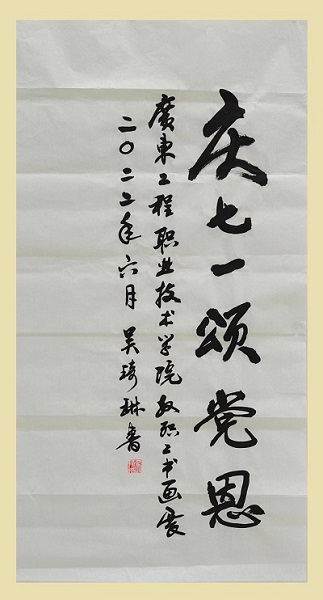 庆七一颂党恩
廣東工程职业技术学院教职工书画展
二〇二二年六月 吴琦琳書